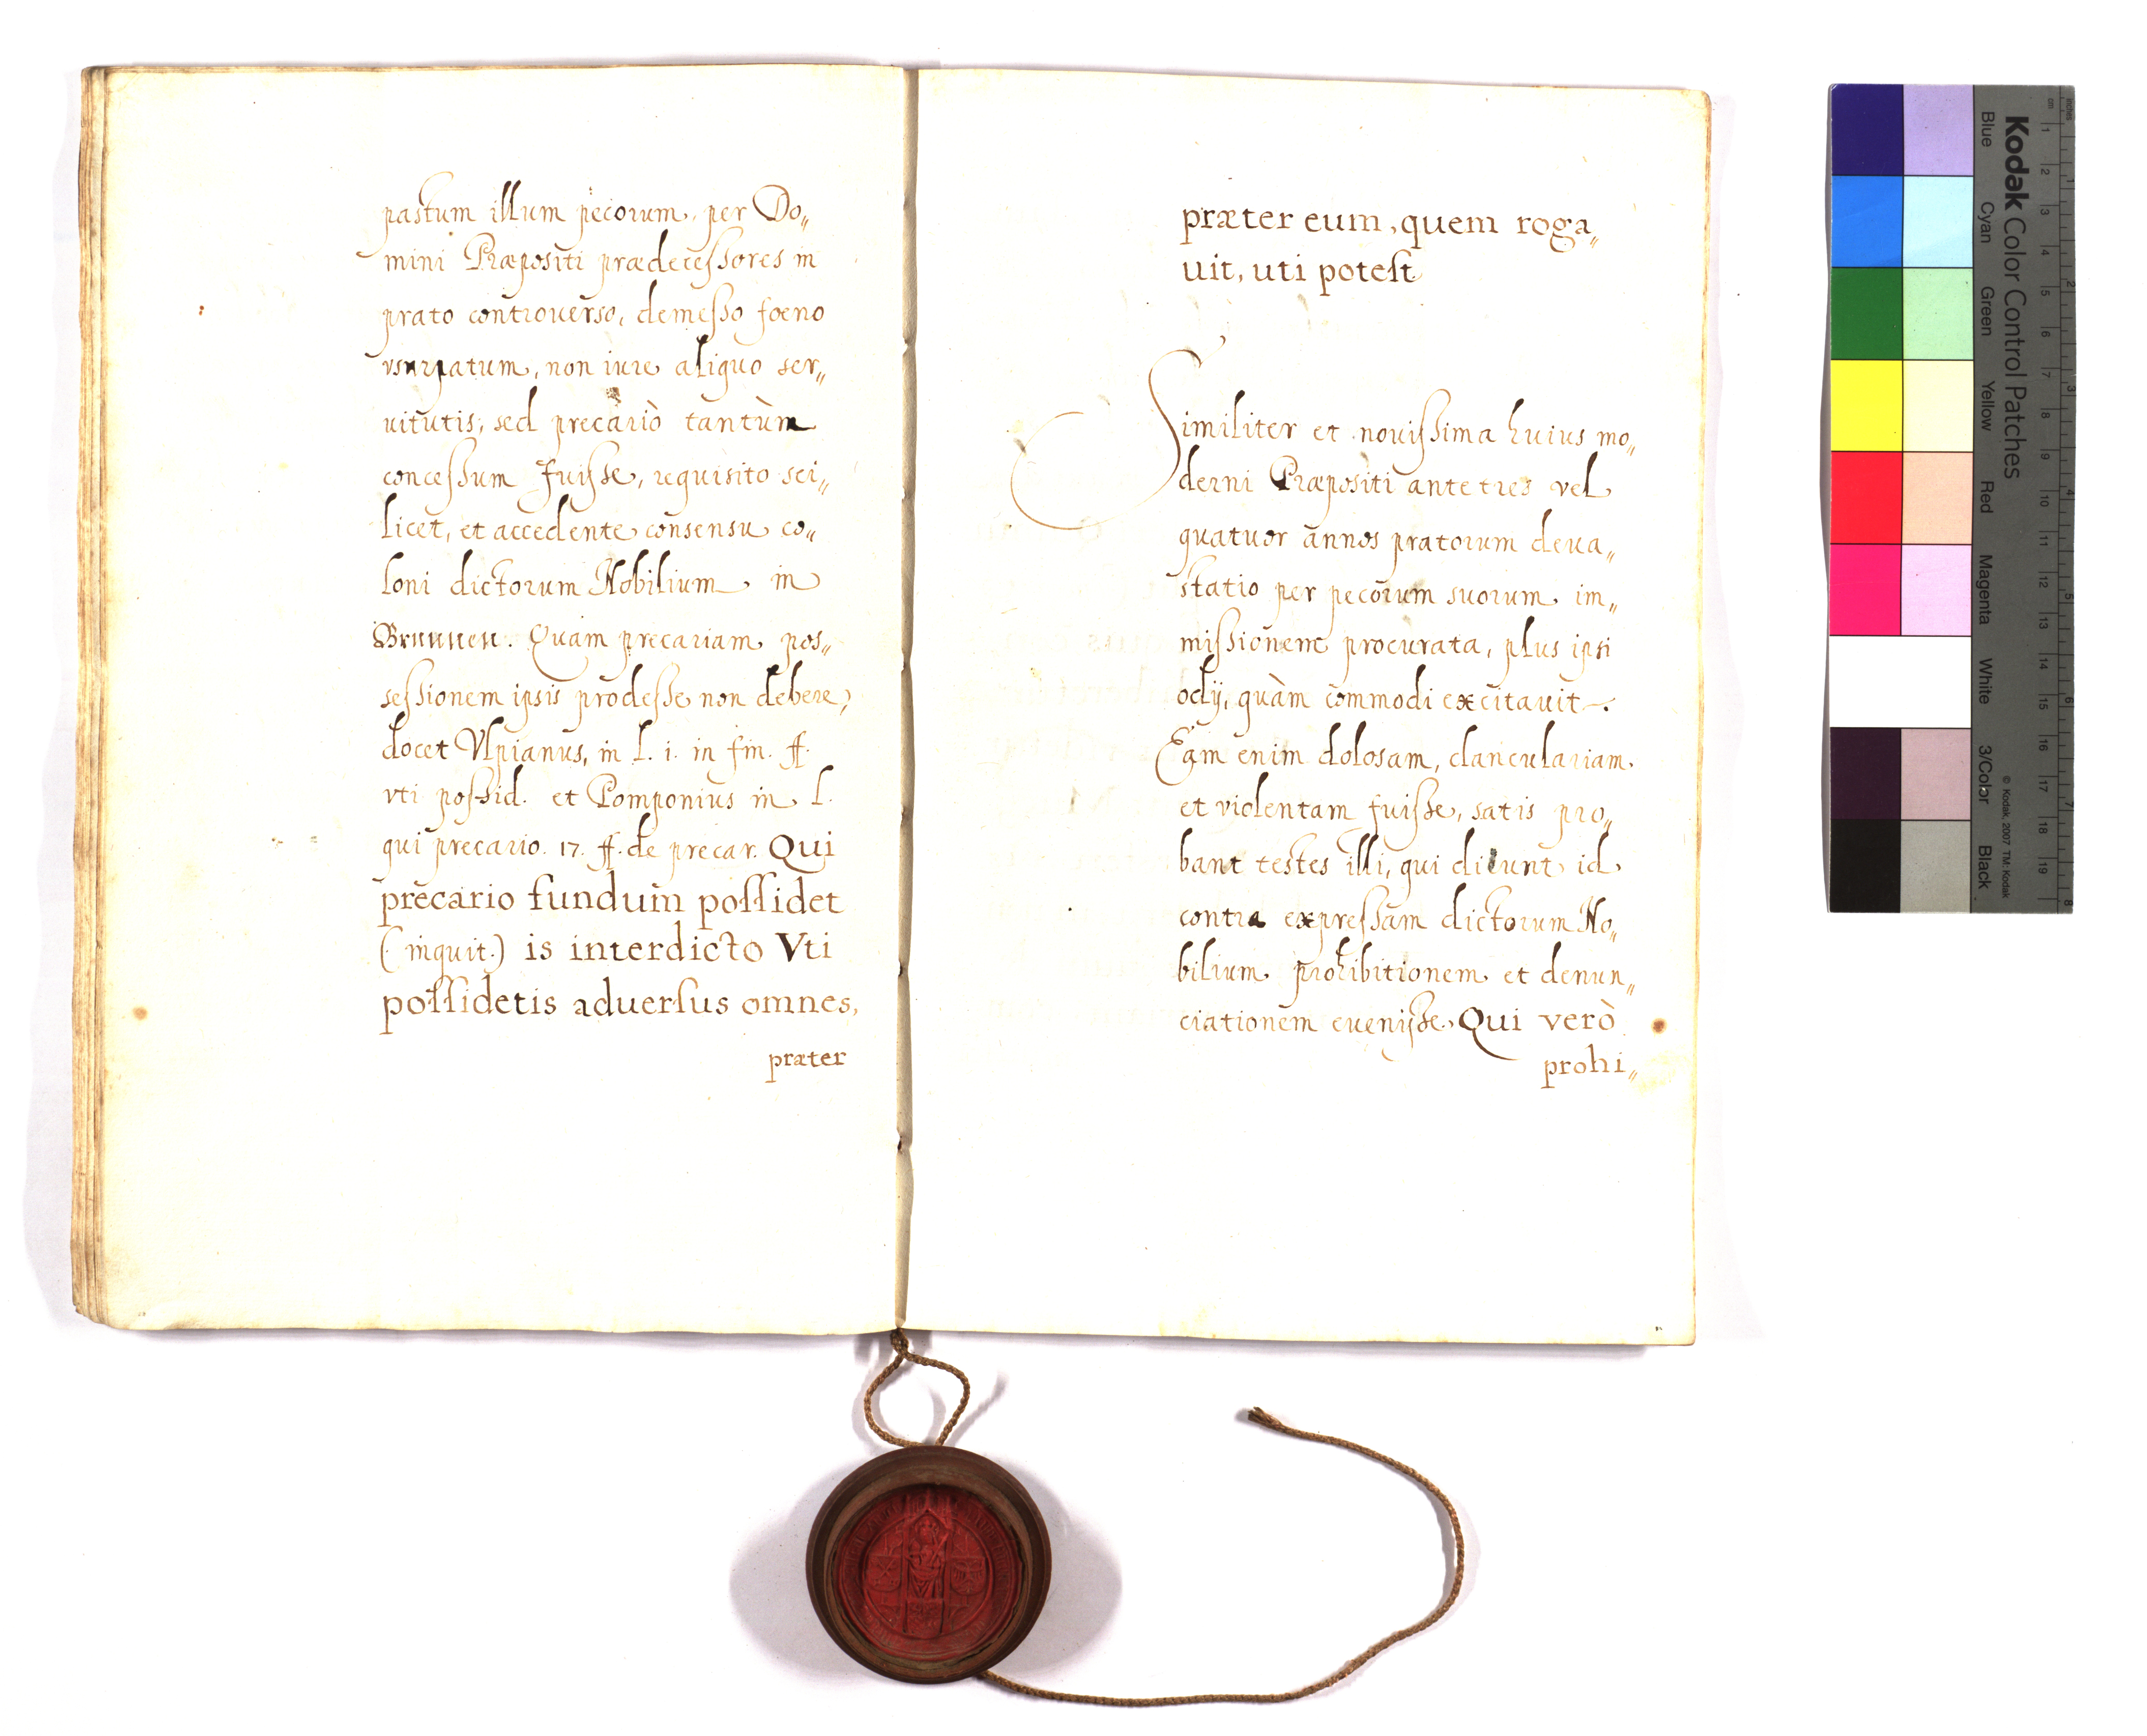 pastum illum pecorum, per Do„
mini Præpositi prædecessores in
prato controuerso, demesso foeno
vsurpatum, non iure aliquo ser„
uitutis, sed precariò tantùm
concessum fuisse, requisito sci„
licet, et accedente consensu co„
loni dictorum Nobilium in
Brunnen. Quam precariam pos„
sessionem ipsis prodesse non debere,
docet Vlpianus, in l. i. in fin. ff.
vti possid. et Pomponius in l.
qui precario. 17. ff. de precar. Qui
precario fundum possidet
(inquit.) is interdicto Vti
possidetis aduersus omnes,
præter
præter eum, quem roga„
uit, uti potest
Similiter et nouissima huius mo„
derni Præpositi ante tres vel
quatuor annos pratorum deua„
statio per pecorum suorum im„
missionem procurata, plus ipsi
odij, quàm commodi excitauit.
Eam enim dolosam, clanculariam
et violentam fuisse, satis pro„
bant testes illi, qui dicunt id
contra expressam dictorum No„
bilium prohibitionem et denun„
ciationem euenisse. Qui verò
prohi„
Kodak Color Control Patches
Blue Cyan Green Yellow Red Magenta White 3/Color Black
© Kodak, 2007 TM: Kodak
cm 1 2 3 4 5 6 7 8 9 10 11 12 13 14 15 16 17 18 19
inches 1 2 3 4 5 6 7 8